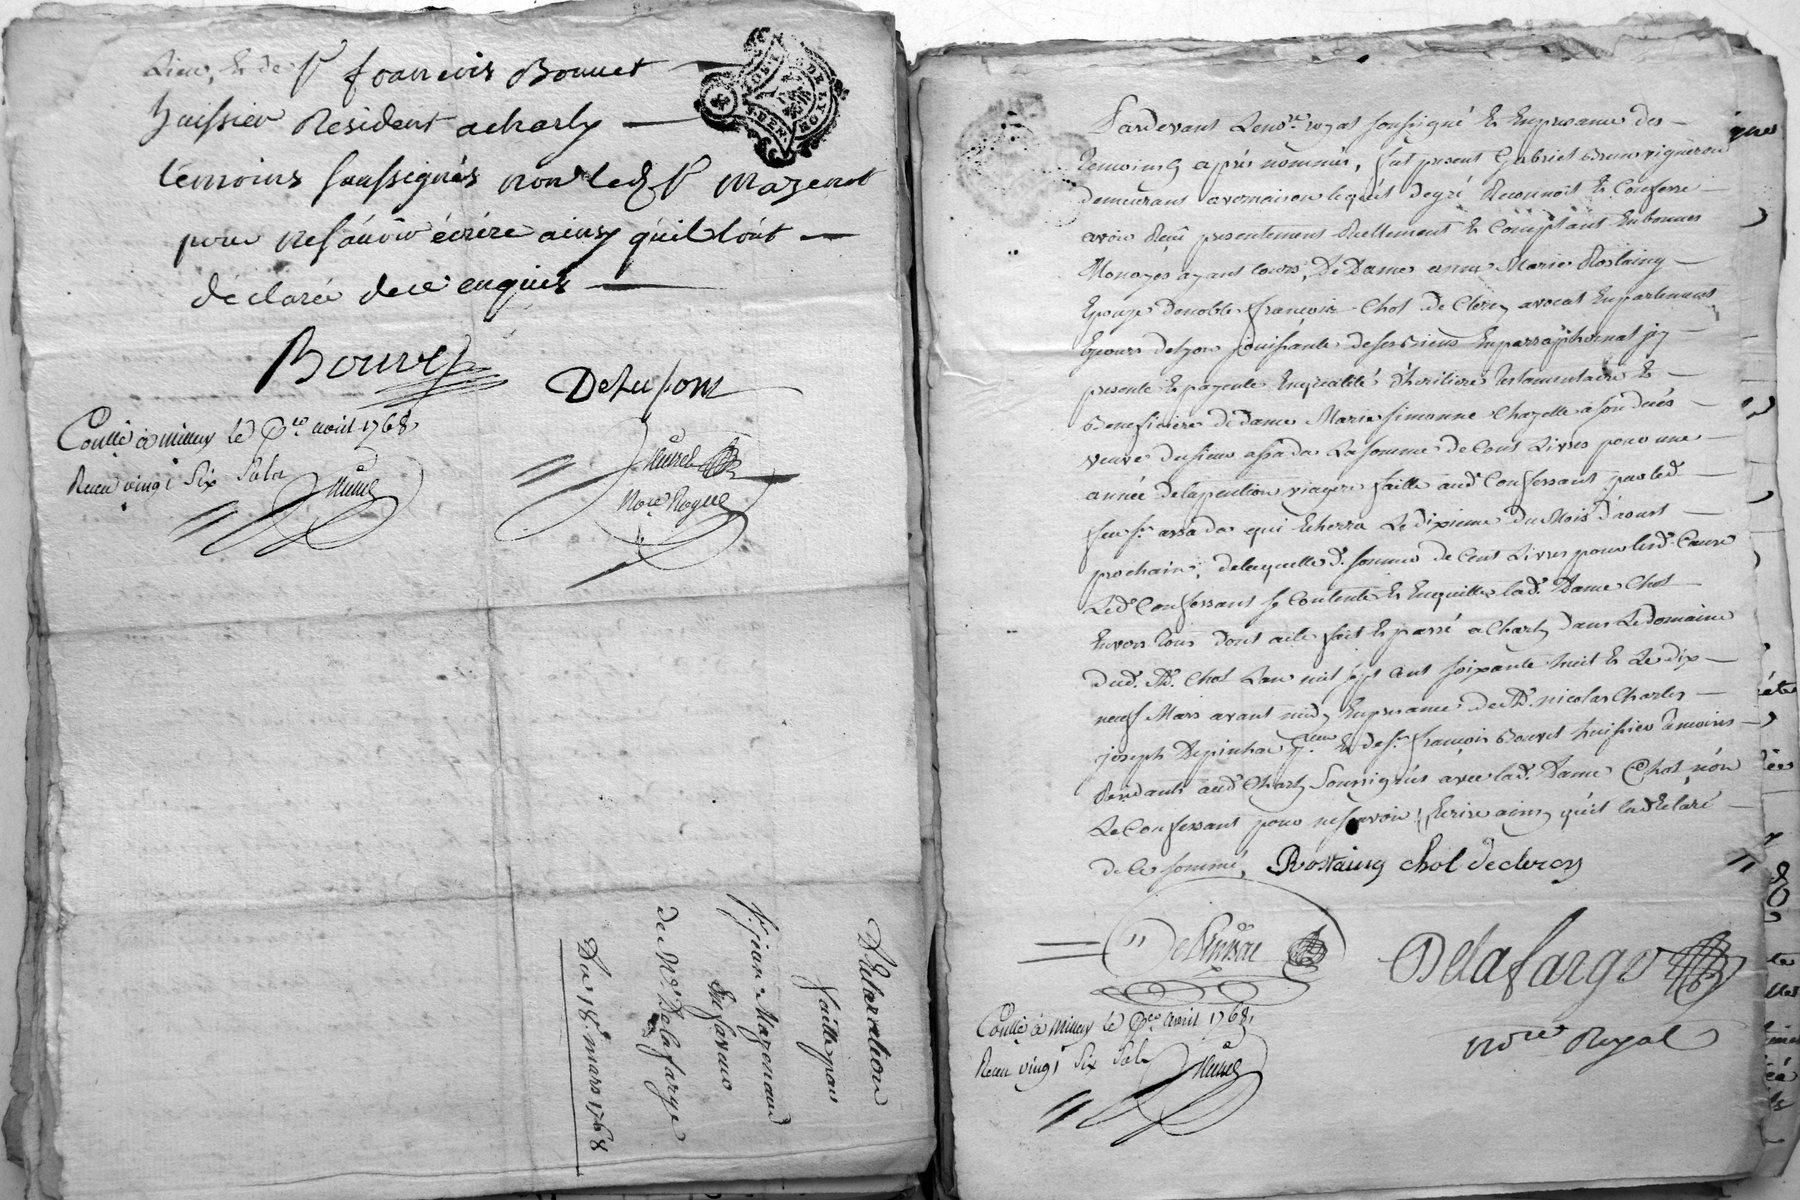 Lieu, Et de Sr francois Bouvet
huissier Résident a charly
temoins soussignés non led. Sr mazenot
pour ne sçavoir écrire ainsy qu'il l'a dit
déclaré de ce enquis
Bouvet
DeLafont
Conllé à millery le 9e avril 1768
Receu vingt six sols
Nore Royal
Déclaration
faitte par
Sr jean Mazenaud
En faveur
de Mr Delafarge
Du 18e mars 1768
Pardevant Le nore royal soussigné Et En presance des
temoins cy après nommés, fut present Gabriel Brun vigneron
demeurant a vernaison lequel de gré Reconnoit Et Confesse
avoir Receu presentement Reellement Et Comptant En bonnes
Monoyes ayant cours, De Dame anne Marie Rostaing
Epouze de noble françois Chol de Clercy avocat En parlement
Et cours de Lyon jouissante de ses biens En parraphernal icy
presente Et payente En qualité d'heritiere testamentaire Et
Beneficiere de dame Marie simonne Chazelle à son decés
veuve du sieur assada La somme de Cent Livres pour une
année de la pention viagere faitte aud. Confessant par led.
feu sr. assada qui Echerra Le dixieme du Mois d'aoust
prochain, de laquelle d. somme de Cent Livres pour lesd. Cause
Led. Confessant se Contente Et En quitte lad. Dame Chol
Envers tous dont acte fait Et passé a Charly Dans Le domaine
dud. Sr. Chol L'an mil sept cent soixante huit Et Le dix
neuf Mars avant midy En presance de Sr. nicolas Charles
joseph Depinhac Et de sr. francois Bouvet huissier temoins
Residants aud. Charly Soussignés avec lad. Dame Chol, non
Le Confessant pour ne sçavoir Ecrire ainsy qu'il l'a declaré
de Ce sommé, Rostaing chol declercy
Delafarge
nore Royal
Conllé à millery le 9e avril 1768
Receu vingt six sols